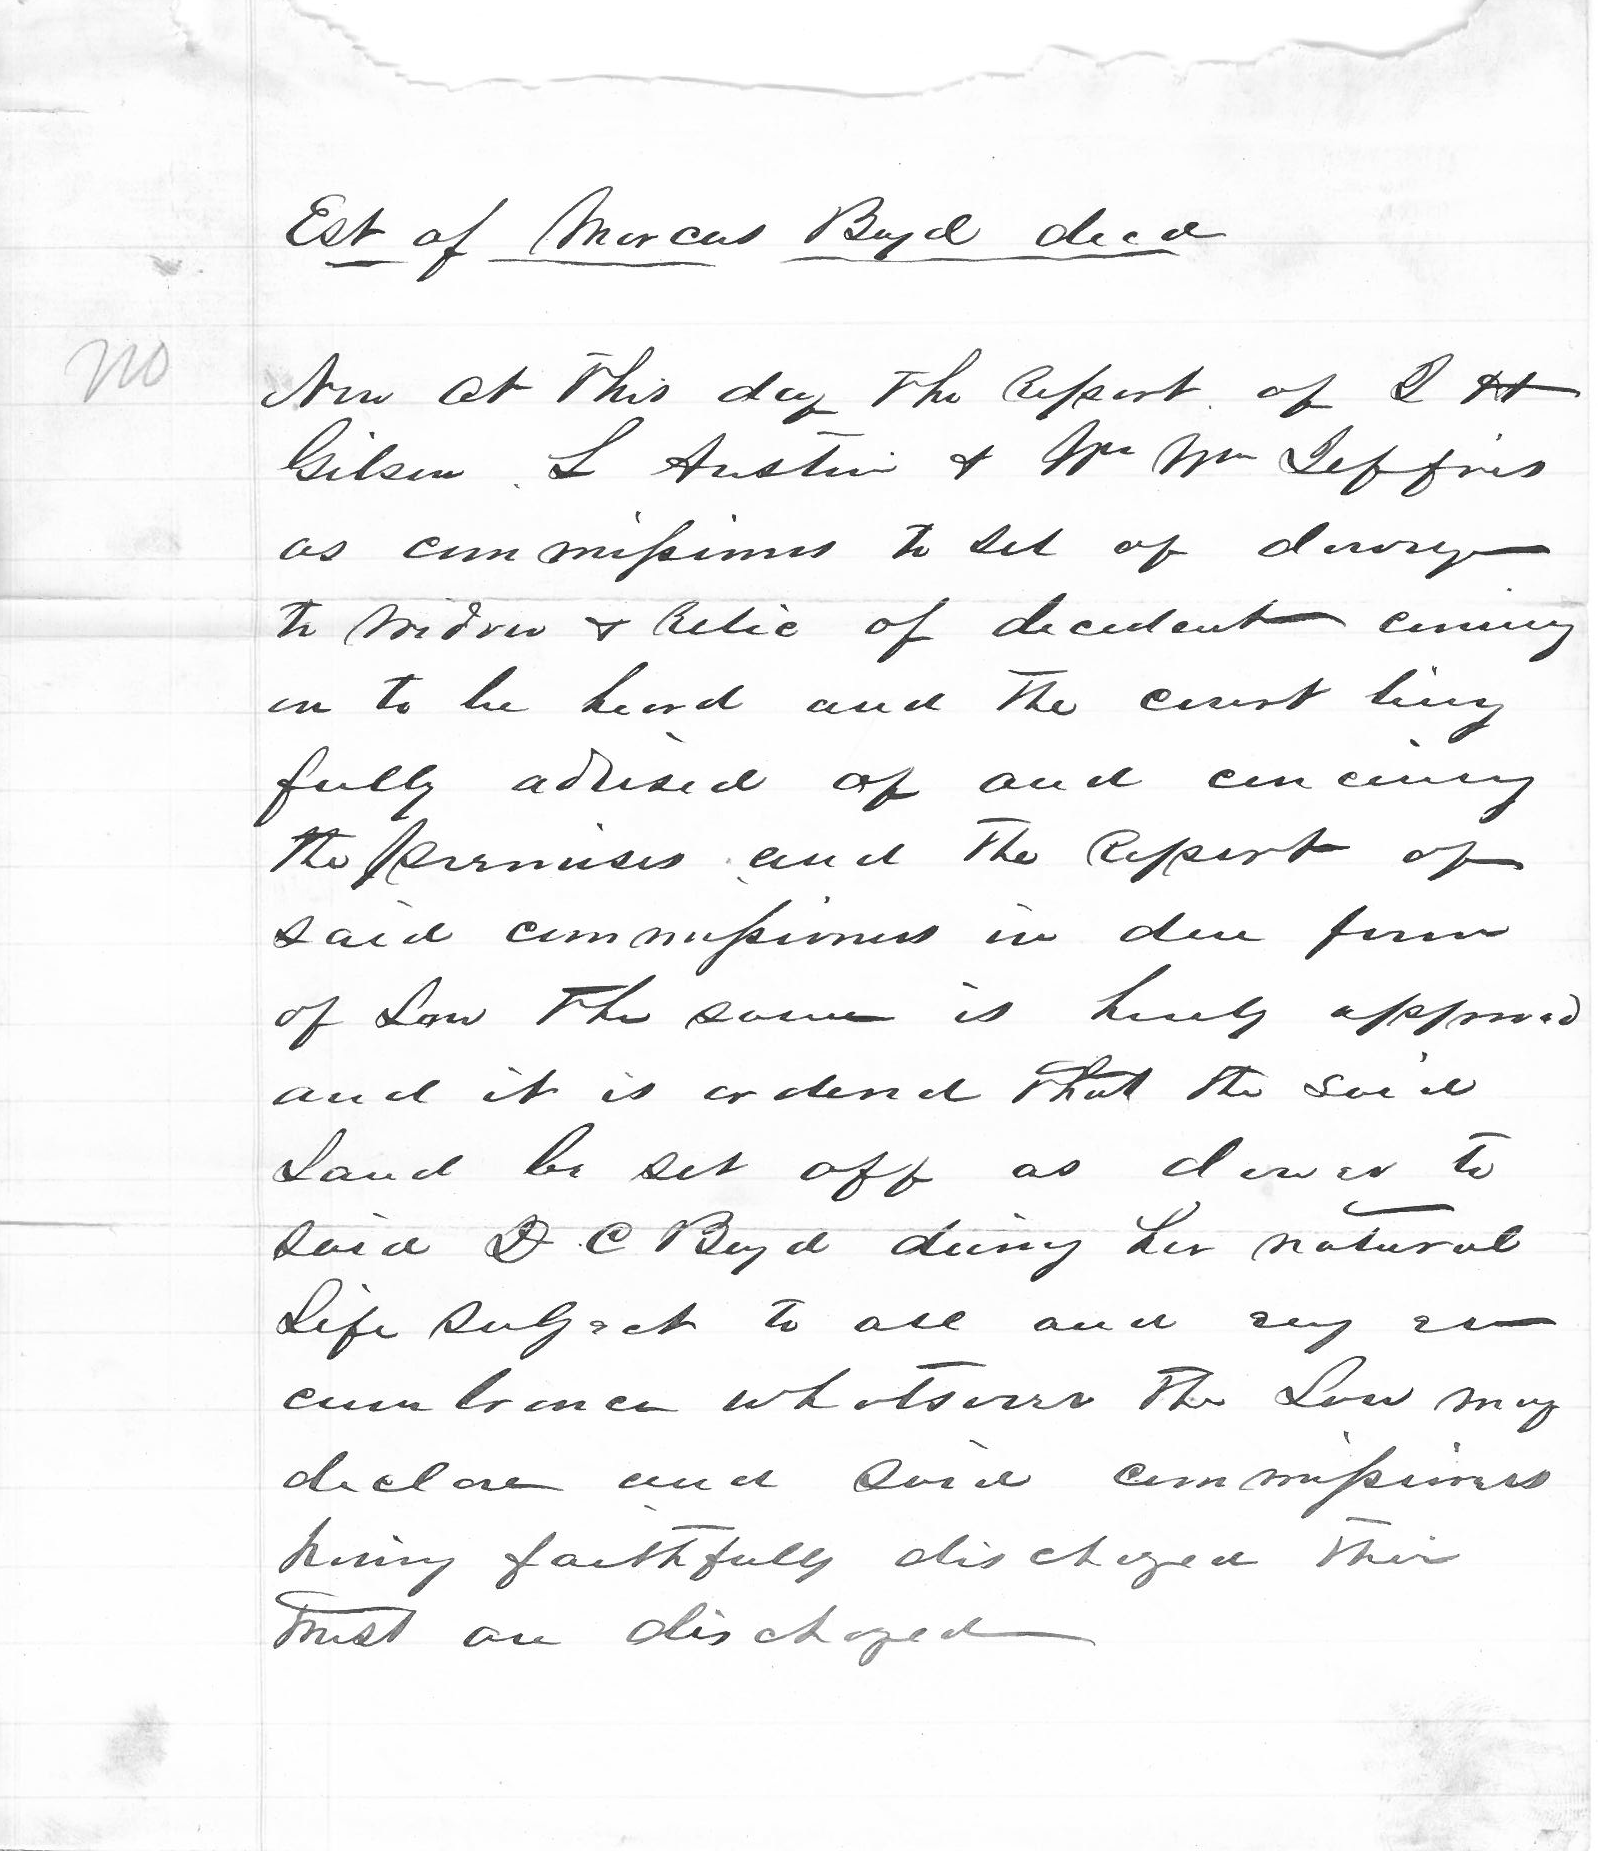 Est of Marcus Boyd decd
no
Now at this day the Report of J H
Gibson L Austin & Wm Wm Jeffries
as commissioners to set of dowry
to widow & Relic of decedent coming
on to be heard and the court being
fully advised of and concerning
the premises and the Report of
said commissioners in due form
of Law the same is hereby approved
and it is ordered that the said
Land be set off as dower to
said D C Boyd during her natural
Life subject to all and any en
cumbrance whatsoever the Law may
declare and said commissioners
having faithfully discharged their
trust are discharged